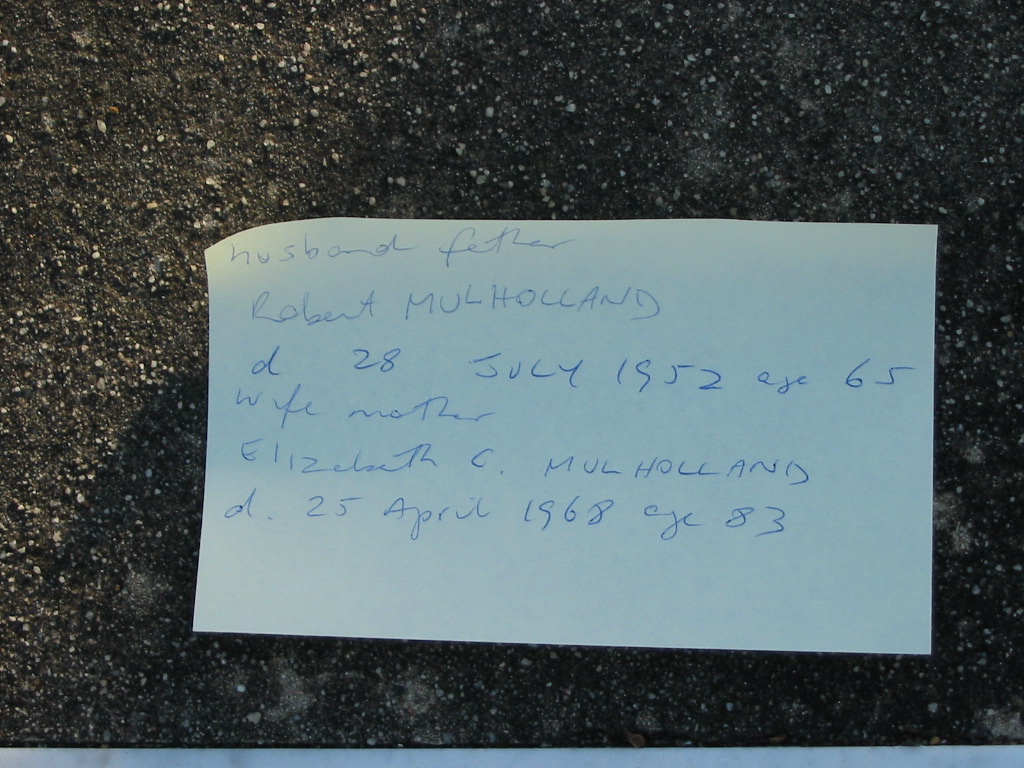 husband father
Robert MULHOLLAND
d 28 JULY 1952 age 65
wife mother
Elizabeth C. MULHOLLAND
d. 25 April 1968 age 83